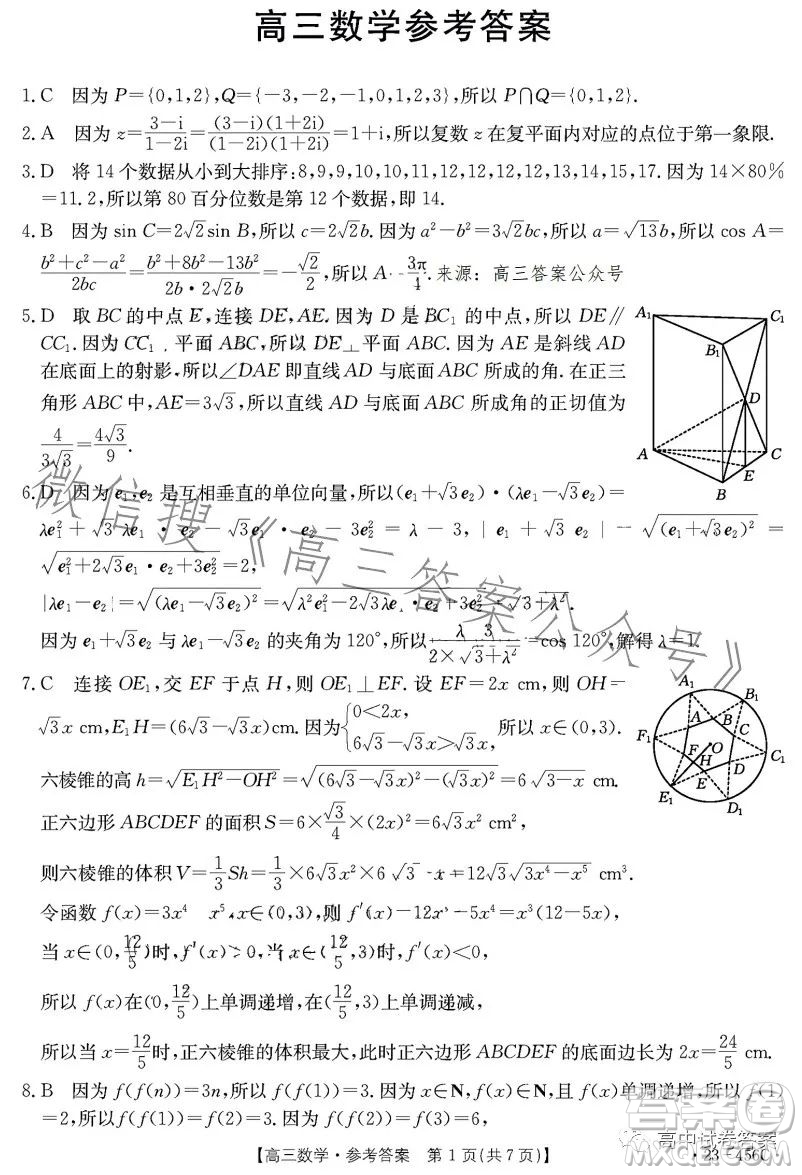 高三数学参考答案
1.C 因为P={0,1,2},Q={-3,-2,-1,0,1,2,3},所以P∩Q={0,1,2}.
2.A 因为z=\frac{3-i}{1-2i}=\frac{(3-i)(1+2i)}{(1-2i)(1+2i)}=1+i,所以复数z在复平面内对应的点位于第一象限.
3.D 将14个数据从小到大排序:8,9,9,9,10,10,11,12,12,12,12,13,14,14,15,17.因为14×80%
=11.2,所以第80百分位数是第12个数据,即14.
4.B 因为sin C=2√2sin B,所以c=2√2b.因为a²-b²=3√2bc,所以a=√13b,所以cos A=
\frac{b²+c²-a²}{2bc}=\frac{b²+8b²-13b²}{2b·2√2b}=-\frac{√2}{2},所以A--\frac{3π}{4}.来源:高三答案公众号
5.D 取BC的中点E,连接DE,AE.因为D是BC₁的中点,所以DE∥
CC₁.因为CC₁ 平面ABC,所以DE⊥平面ABC.因为AE是斜线AD
在底面上的射影,所以∠DAE即直线AD与底面ABC所成的角.在正三
角形ABC中,AE=3√3,所以直线AD与底面ABC所成角的正切值为
\frac{4}{3√3}=\frac{4√3}{9}.
A₁
C₁
B₁
D
A
C
E
B
6.D 因为e₁,e₂是互相垂直的单位向量,所以(e₁+√3e₂)·(λe₁-√3e₂)=
λe₁²+√3λe₁·e₂-√3e₁·e₂-3e₂²=λ-3,|e₁+√3e₂|-√((e₁+√3e₂)²)=
√(e₁²+2√3e₁·e₂+3e₂²)=2,
|λe₁-e₂|=√((λe₁-√3e₂)²)=√(λ²e₁²-2√3λe₁·e₂+3e₂²)=√(3+λ²).
因为e₁+√3e₂与λe₁-√3e₂的夹角为120°,所以\frac{λ 3}{2×√(3+λ²)}=cos 120°,解得λ=1.
7.C 连接OE₁,交EF于点H,则OE₁⊥EF.设EF=2x cm,则OH=
√3x cm,E₁H=(6√3-√3x)cm.因为{0<2x, 6√3-√3x>√3x, 所以x∈(0,3).
六棱锥的高h=√(E₁H²-OH²)=√((6√3-√3x)²-(√3x)²)=6√(3-x) cm.
正六边形ABCDEF的面积S=6×\frac{√3}{4}×(2x)²=6√3x² cm²,
则六棱锥的体积V=\frac{1}{3}Sh=\frac{1}{3}×6√3x²×6√(3-x)=12√3√(3x⁴-x⁵) cm³.
A₁
B₁
A
B
C
F₁
F
O
H
D
C₁
E
E₁
D₁
令函数f(x)=3x⁴ x⁵,x∈(0,3),则f'(x)-12x³-5x⁴=x³(12-5x),
当x∈(0,\frac{12}{5})时,f'(x)>0,当x∈(\frac{12}{5},3)时,f'(x)<0,
所以f(x)在(0,\frac{12}{5})上单调递增,在(\frac{12}{5},3)上单调递减,
所以当x=\frac{12}{5}时,正六棱锥的体积最大,此时正六边形ABCDEF的底面边长为2x=\frac{24}{5} cm.
8.B 因为f(f(n))=3n,所以f(f(1))=3.因为x∈N,f(x)∈N,且f(x)单调递增,所以f(1)
=2,所以f(f(1))=f(2)=3.因为f(f(2))=f(3)=6,
【高三数学·参考答案 第1页(共7页)】
·23-456C·
微信搜《高三答案公众号》
高中试卷答案
答案圈